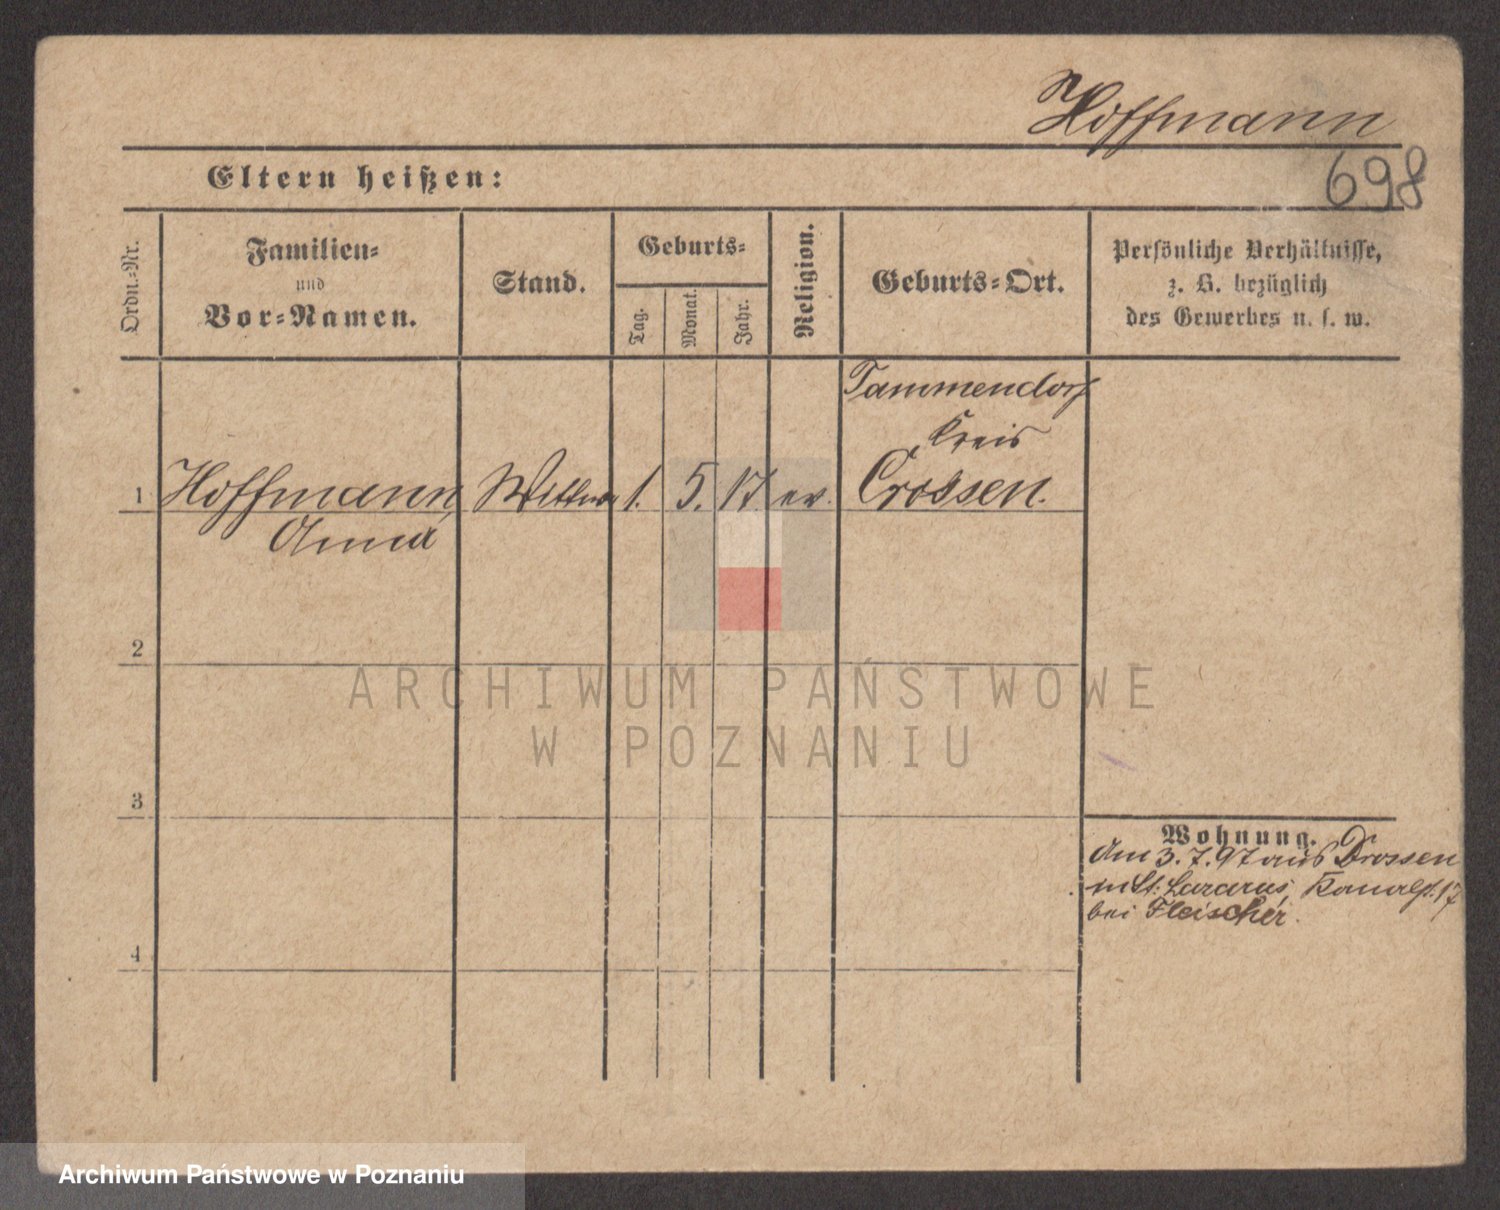 Hoffmann
698
Eltern heißen:
Ordn.-Nr.
Familien-
und
Vor-Namen.
Stand.
Geburts-
Tag.
Monat.
Jahr.
Religion.
Geburts-Ort.
Persönliche Verhältnisse,
z. B. bezüglich
des Gewerbes u. s. w.
Tammendorf
Kreis
1 Hoffmann, Wittwe 1. 5. 17. ev. Crossen.
Anna
2
ARCHIWUM PAŃSTWOWE
W POZNANIU
3
Wohnung.
Am 3.7.97 aus Drossen
in St. Lazarus, Kanalst. 17
bei Fleischer.
4
Archiwum Państwowe w Poznaniu